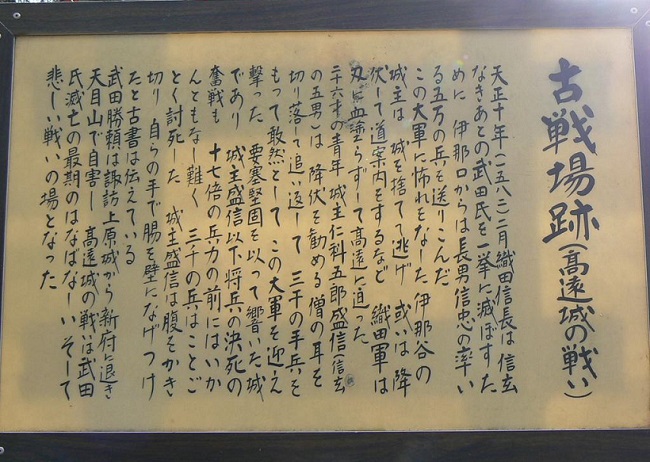 古戦場跡(高遠城の戦い)
天正十年(一五八二)二月織田信長は 信玄
なきあとの武田氏を一挙に滅ぼすた
めに 伊那口からは長男信忠の率い
る五万の兵を送りこんだ
この大軍に怖れをなした伊那谷の
城主は 城を捨てて逃げ 或いは降
伏して道案内をするなど 織田軍は
刃に血塗らずして高遠に迫った
二十六才の青年城主仁科五郎盛信(信玄
の五男)は 降伏を勧める僧の耳を
切り落して追い返して 三千の手兵を
もって敢然として この大軍を迎え
撃った 要塞堅固を以って響いた城
であり 城主盛信以下将兵の決死の
奮戦も 十七倍の兵力の前にはいか
んともなし難く 三千の兵はことご
とく討死した 城主盛信は腹をかき
切り 自らの手で腸を壁になげつけ
たと古書は伝えている
武田勝頼は諏訪上原城から新府に退き
天目山で自害し 高遠城の戦いは武田
氏滅亡の最期のはなばなしい そして
悲しい戦いの場となった